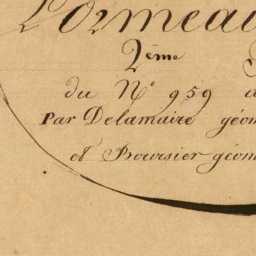 2ème
du N° 959
Par Delamaire géom
et Boursier géom